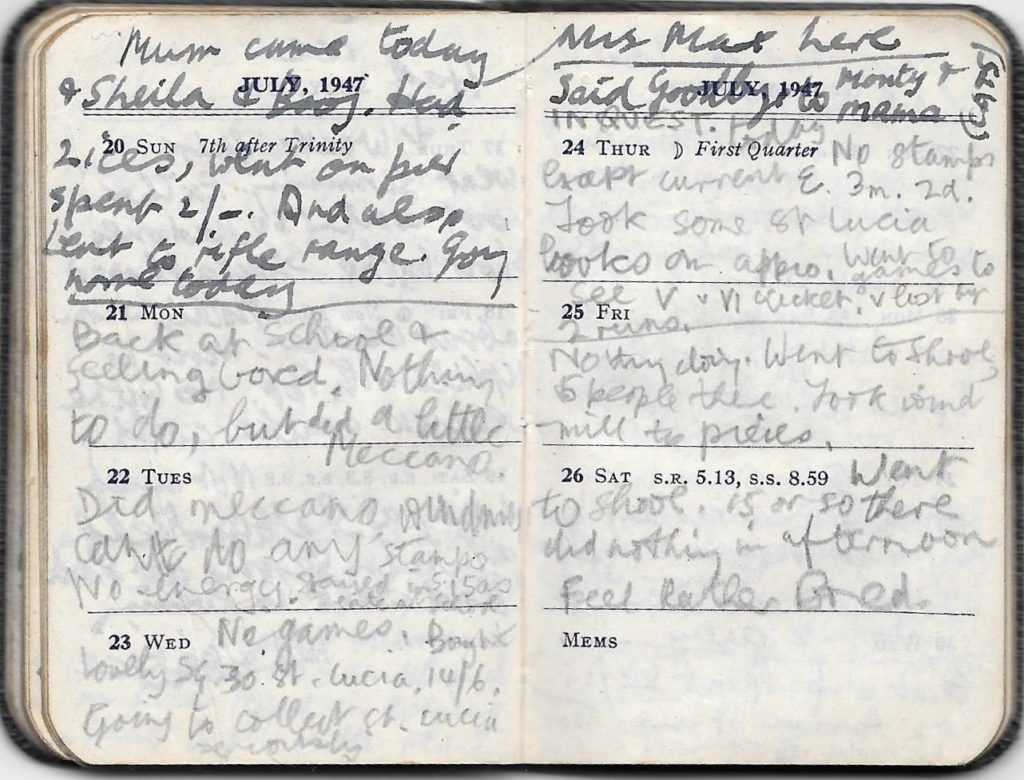 Mum came today
JULY, 1947
& Sheila & Had
20 SUN 7th after Trinity
2 ices, went on pier
spent 2/-. And also
went to rifle range. Going
home today
21 MON
Back at School &
feeling bored. Nothing
to do, but did a little
Meccano.
22 TUES
Did meccano windmill
to any stamps
No energy. in 5.15 as
23 WED No games. Bought
lovely SG 30 St. Lucia, 14/6.
Going to collect St. Lucia
seriously
Mrs Max here
(Sby)
JULY, 1947
Said Goodbye to Monty &
Mama
INQUEST. today
24 THUR ☽ First Quarter No stamps
except current E. 3m. 2d.
Took some St Lucia
books on appro. Went so
games to
see V v VI cricket. V lost by
2 runs.
25 FRI
Nothing doing. Went to Shool,
5 people there. Took wind
mill to pieces.
26 SAT S.R. 5.13, S.S. 8.59 Went
to Shool. 15 or so there
did nothing in afternoon
Feel Rather Bored.
MEMS